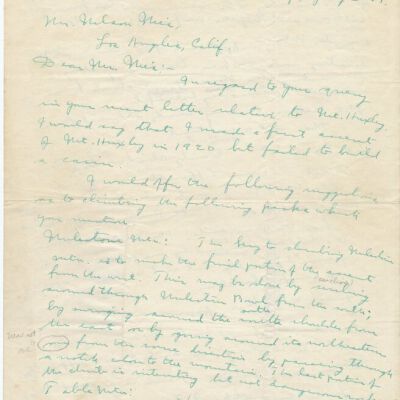 Mr. Nelson Nies,
Los Angeles, Calif.
Dear Mr. Nies:-
In regard to your query
in your recent letter relative to Mt. Huxley,
I would say that I made a first ascent
of Mt. Huxley in 1920 but failed to build
a cairn.
I would offer the following suggestions
as to climbing the following peaks which
you mention
Milestone Mtn: The key to climbing Milestone
mtn. is to make the final portion of the ascent
from the west. This may be done by
around through Milestone Bowl from the
by swinging around the south
the east or by going around its northeastern
from the same direction by passing through
a notch close to the mountain. The last portion of
the climb is interesting but not dangerous
Table Mtn: